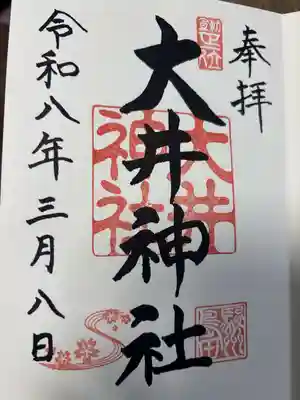 奉拝
大井神社
大井
神社
令和八年三月八日